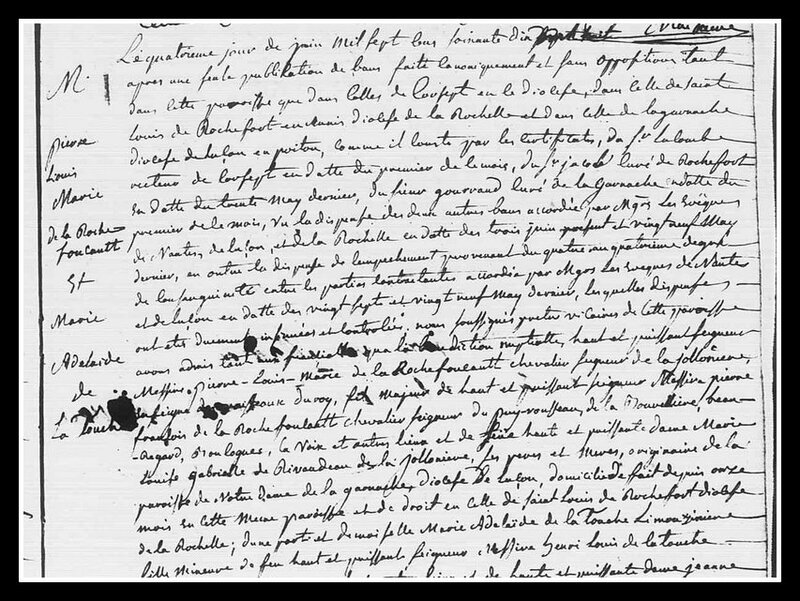 M.
pierre
Louis
Marie
de la Roche-
foucaultt
Et
Marie
Adelaide
de
La Touche
Le quatrieme jour de juin Mil sept cens soixante dix sept huit
apres une seule publication de bans faite canoniquement et sans opposition tant
dans cette paroisse que dans celles de Couffept en ce diocese, dans celle de saint
Louis de Rochefort en Aunis diocese de la Rochelle et dans celle de lagarnache
diocese de Luçon en poitou, comme il conste par les certificats, du Sr Lacombe
recteur de Couffept en datte du premier de ce mois, du Sr jacob curé de Rochefort
En datte du trente May dernier, du sieur gourraud curé de la Garnache en datte du
premier de ce mois, vu la dispense des deux autres bans accordée par Mgrs les Evêques
de Nantes, de luçon, et de la Rochelle en datte des trois juin present et vingt neuf May
dernier, en outre la dispense de l'empechement provenant du quatre au quatrieme degré
de consanguinité entre les parties contractantes accordée par Mgrs les Eveques de Nantes
et de luçon en datte des vingt sept et vingt neuf May dernier, lesquelles dispenses
ont étés duement insinuées et controlées, nous soussignés pretre vicaires de cette paroisse
avons admis tant aux fiançailles que la benediction nuptialle, haut et puissant seigneur
Messire Pierre-Louis-Marie de la Rochefoucaultt chevalier seigneur de la jollonière,
enseigne de vaisseaux du roy, fils majeur de haut et puissant seigneur Messire pierre
francois de la Rochefoucaultt chevalier seigneur du Puy-rousseau, de la beau-
Regard, Boulogues, la Noix et autres lieux et de haute et puissante dame Marie
Louise gabrielle de Rivaudeau de la jollonière, ses peres et meres, originaire de la
paroisse de Notre Dame de la garnache, diocese de luçon, domicilié de fait depuis onze
mois en cette Meme paroisse et de droit en celle de saint Louis de Rochefort diocese
de la Rochelle; d'une part et demoiselle Marie Adelaïde de la Touche Limouziniere
fille Mineure de feu haut et puissant seigneur Messire henri Louis de la touche
et de haute et puissante dame jeanne